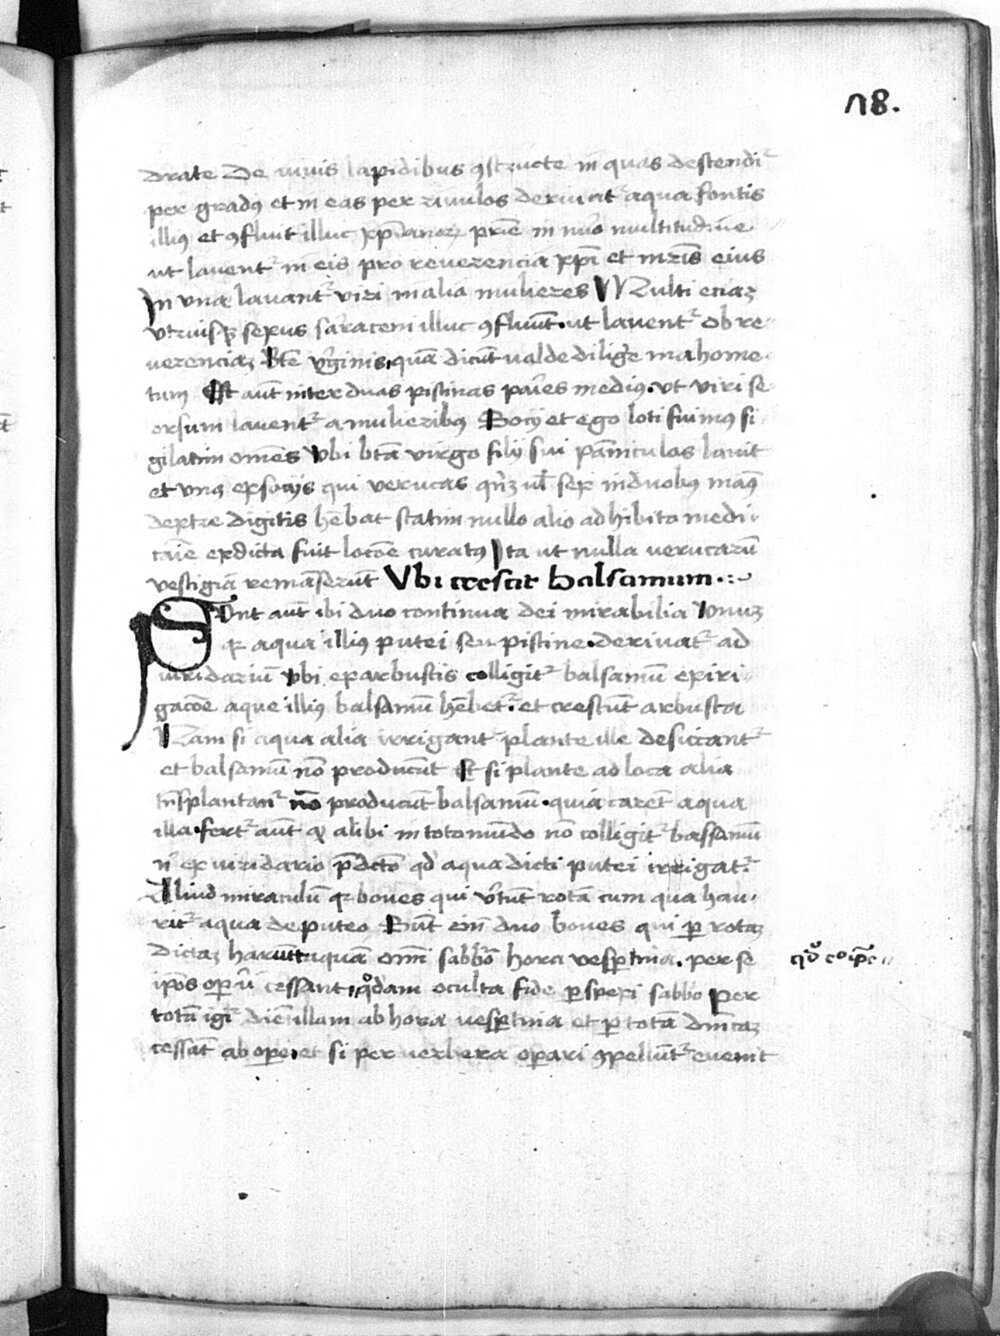 78.
drate De viuis lapidibus ꝯstructe in quas descendit᷑
per gradꝰ et in eas per riuulos deriuat᷑ aqua fontis
illiꝰ et ꝯfluit illuc xp̄ianoꝝ pūe in multitudine
ut lauent᷑ in eis pro reuerencia xp̄i et mr̄is eius
In vna lauant᷑ viri in alia mulieres Multi eciaꝫ
vtriusqꝫ sexus saraceni illuc ꝯfluūt. ut lauent᷑ ob re-
uerenciaꝫ bte virginis, quā dicūt valde diligēr mahome-
tum Est aūt inter duas piscinas paries mediꝰ. vt viri se-
orsum lauent᷑ a mulieribꝰ Socij et ego loti fuimꝰ si
gilatim omēs Vbi btā virgo filij sui pāniculos lauit
et vnꝰ ex socijs qui verucas ul̄ sex in duobꝰ manꝰ
dextre digitis hēbat statim nullo alio adhibito medi-
caīe ex dicta fuit locōe curatꝰ Ita ut nulla verucarū
vestigia remāserūt Vbi crescit balsamum.
Sunt aūt ibi duo continua dei mirabilia Vnuꝫ
qꝫ aqua illiꝰ putei seu piscine. deriuat᷑ ad
uiridariū vbi ex arbustis colligit᷑ balsamū ex iri
gacōe aque illiꝰ balsamū hēbet᷑. et crescūt arbusta
Nam si aqua alia irrigant᷑ plante ille desiccant᷑
et balsamū nō producūt Et si plante ad loca alia
trāsplantant᷑ nō producūt balsamū. quia carēt aqua
illa. fert᷑ aūt qꝫ alibi in toto mūdo nō colligit᷑ bassamū
nͥ ex viridario p̄dcō qd̓ aqua dicti putei irrigat᷑
Aliud mirandū qꝫ boues qui v̓tūt rotā cum qua hau-
rit᷑ aqua de puteo Sūt eīm duo boues qui ꝑ rotaꝫ
dictaꝫ hauriūt aquam omī sabbō hora vesꝑtina. per se
ip̄os opari cessant, qͦdam oculta fide ꝑ sabbō per
totā igit᷑ diē illam ab hora vesꝑtina et ꝑ totā dn̄icaꝫ
cessāt ab opere. et si per verbera opari ꝯpellūt᷑ euenit